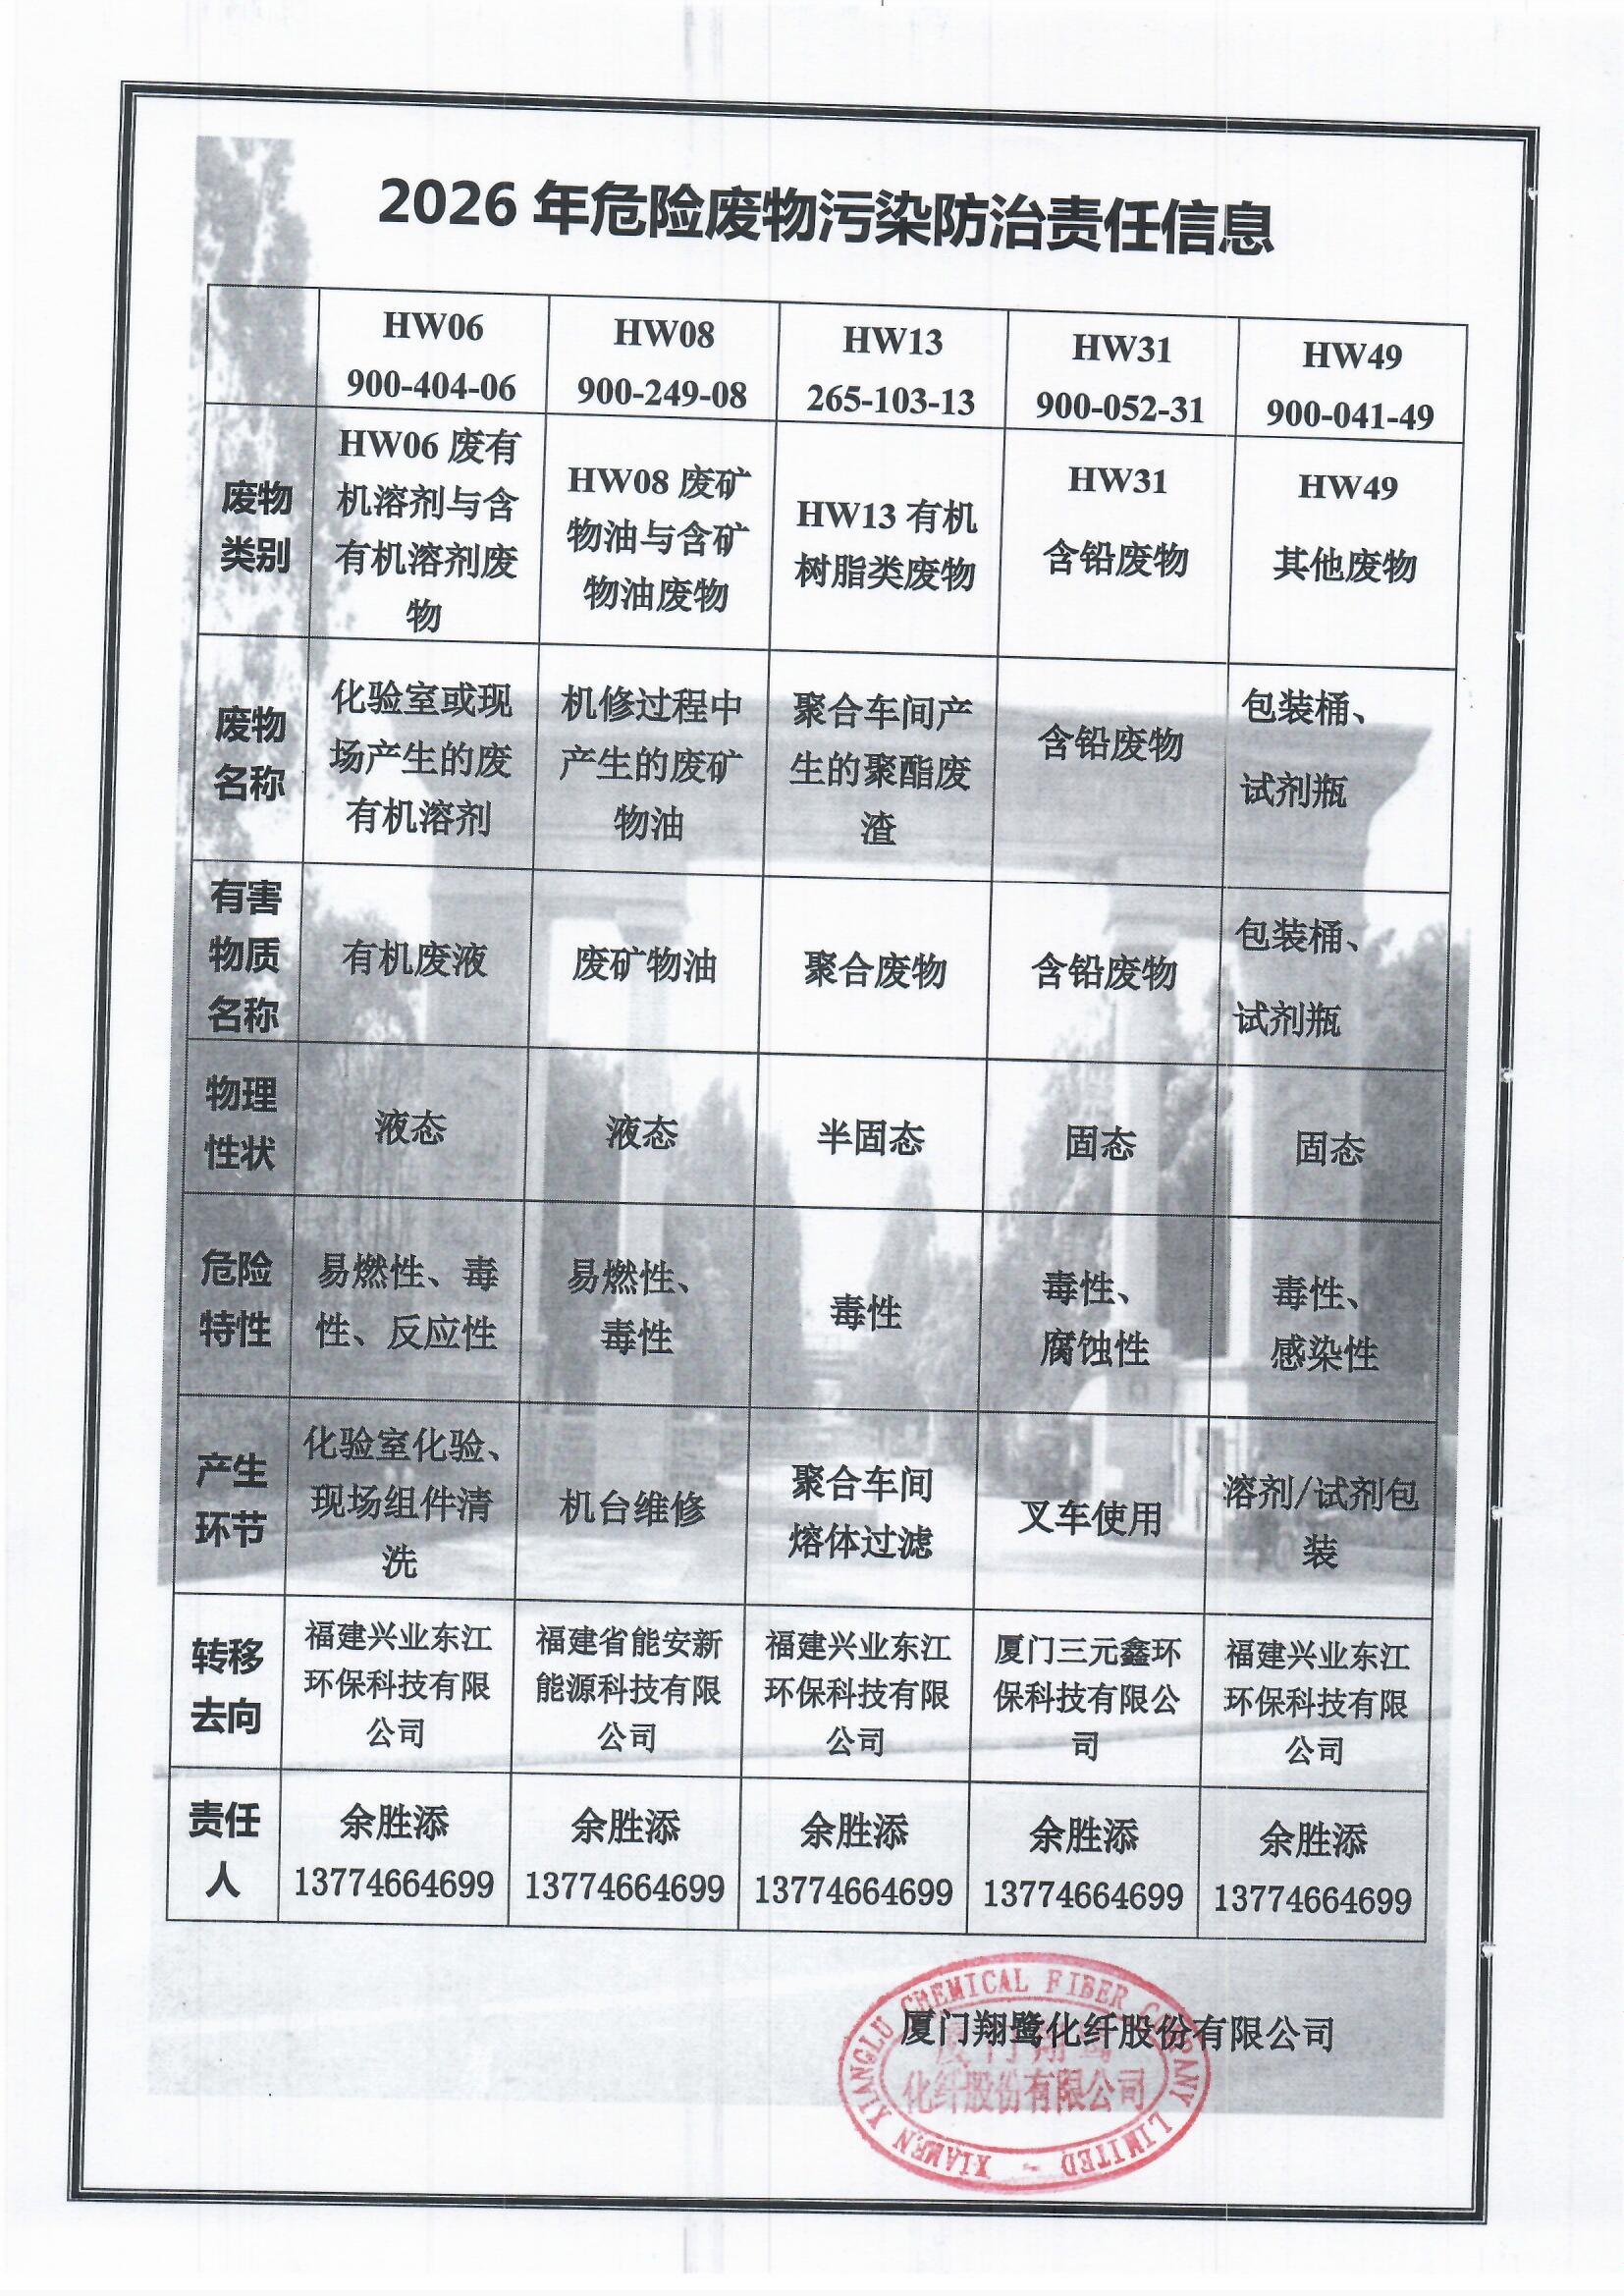 2026 年危险废物污染防治责任信息
HW06
900-404-06
HW08
900-249-08
HW13
265-103-13
HW31
900-052-31
HW49
900-041-49
废物
类别
HW06 废有
机溶剂与含
有机溶剂废
物
HW08 废矿
物油与含矿
物油废物
HW13 有机
树脂类废物
HW31
含铅废物
HW49
其他废物
废物
名称
化验室或现
场产生的废
有机溶剂
机修过程中
产生的废矿
物油
聚合车间产
生的聚酯废
渣
含铅废物
包装桶、
试剂瓶
有害
物质
名称
有机废液
废矿物油
聚合废物
含铅废物
包装桶、
试剂瓶
物理
性状
液态
液态
半固态
固态
固态
危险
特性
易燃性、毒
性、反应性
易燃性、
毒性
毒性
毒性、
腐蚀性
毒性、
感染性
产生
环节
化验室化验、
现场组件清
洗
机台维修
聚合车间
熔体过滤
叉车使用
溶剂/试剂包
装
转移
去向
福建兴业东江
环保科技有限
公司
福建省能安新
能源科技有限
公司
福建兴业东江
环保科技有限
公司
厦门三元鑫环
保科技有限公
司
福建兴业东江
环保科技有限
公司
责任
人
余胜添
13774664699
余胜添
13774664699
余胜添
13774664699
余胜添
13774664699
余胜添
13774664699
厦门翔鹭化纤股份有限公司
XIAMEN XIANGLU CHEMICAL FIBER COMPANY LIMITED
厦门翔鹭
化纤股份有限公司